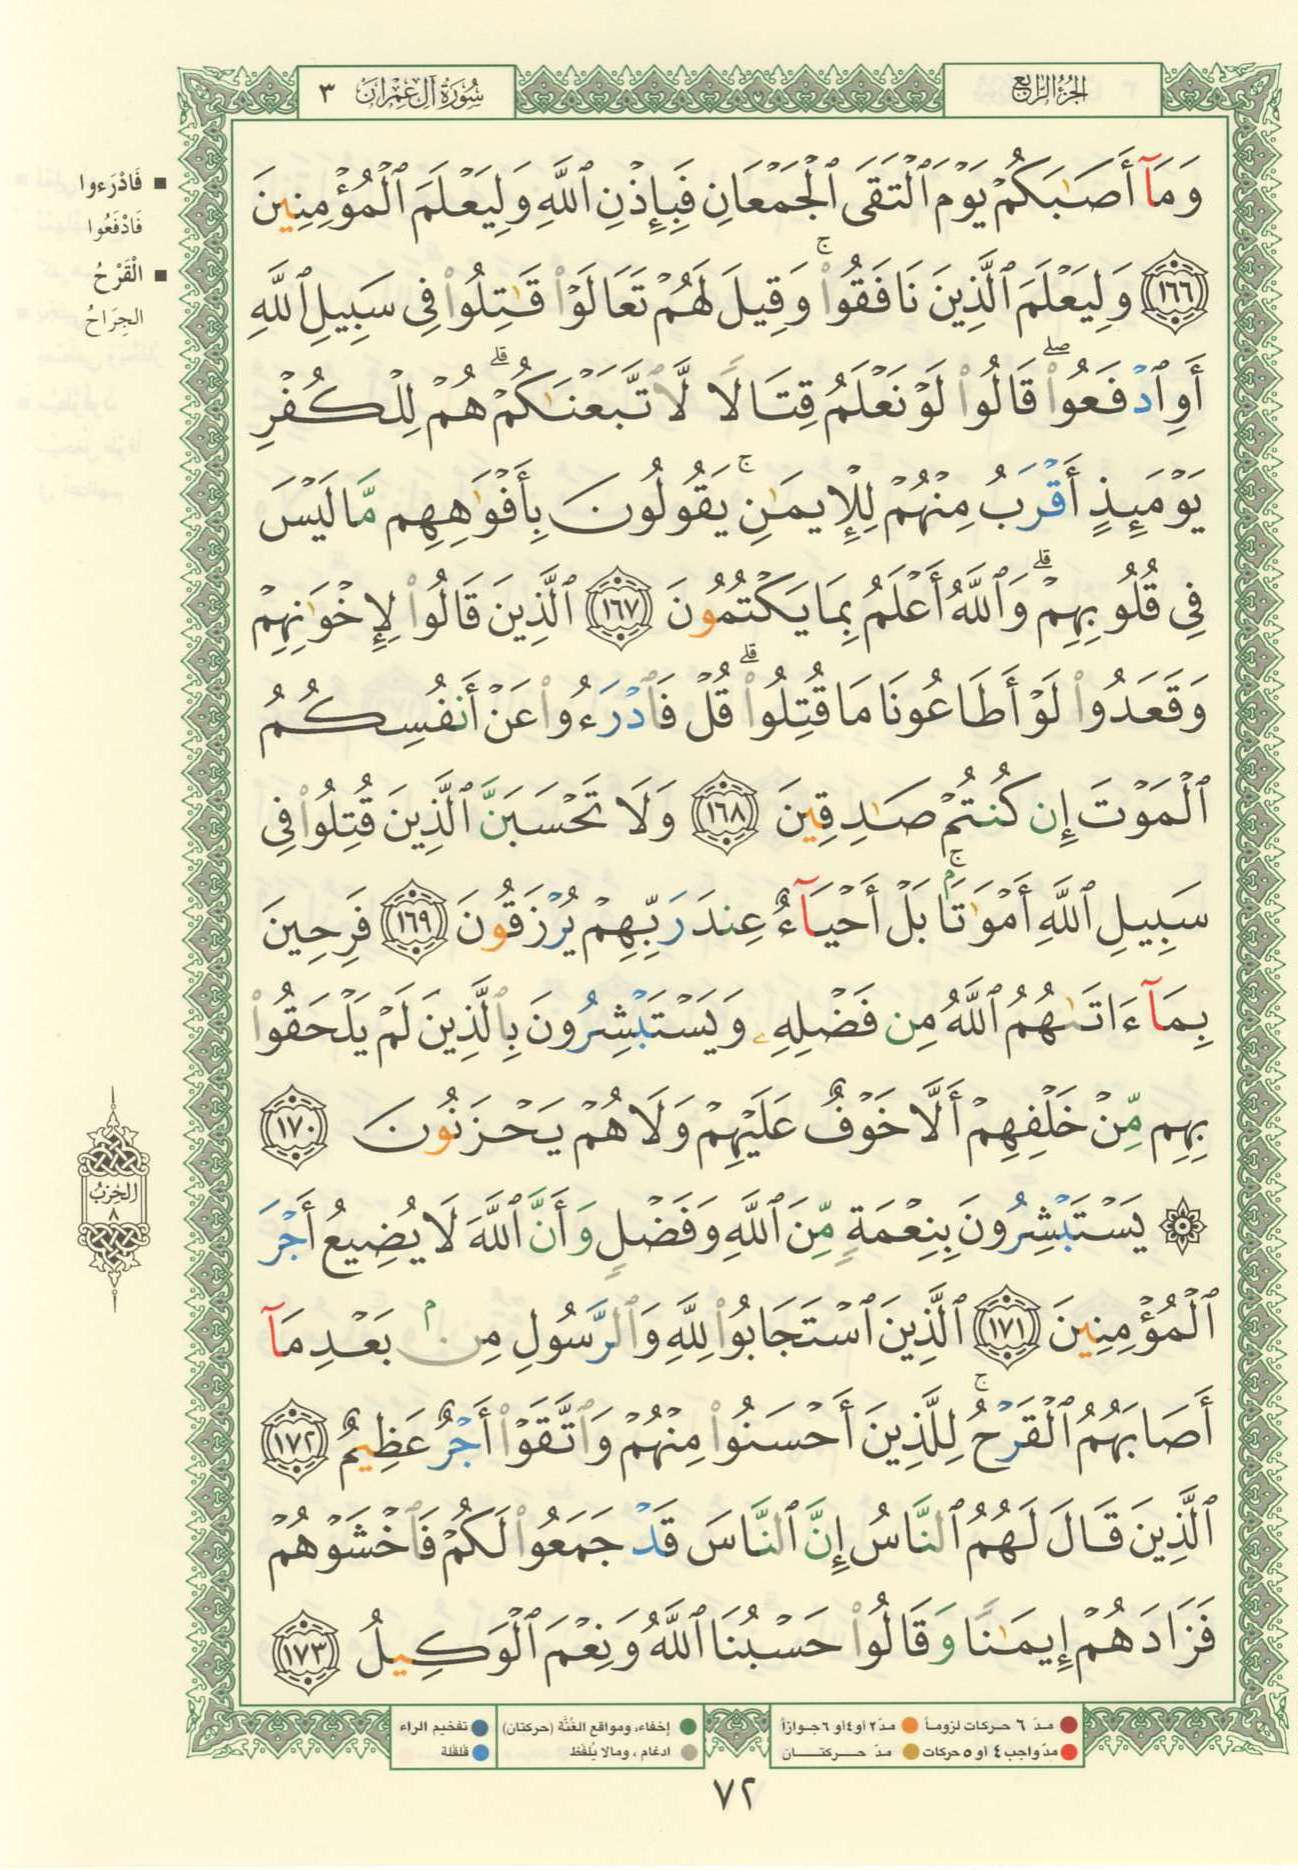 الجزء الرابع
سورة آل عمران ٣
وَمَآ أَصَٰبَكُمْ يَوْمَ ٱلْتَقَى ٱلْجَمْعَانِ فَبِإِذْنِ ٱللَّهِ وَلِيَعْلَمَ ٱلْمُؤْمِنِينَ
١٦٦ وَلِيَعْلَمَ ٱلَّذِينَ نَافَقُوا۟ ۚ وَقِيلَ لَهُمْ تَعَالَوْا۟ قَٰتِلُوا۟ فِى سَبِيلِ ٱللَّهِ
أَوِ ٱدْفَعُوا۟ ۖ قَالُوا۟ لَوْ نَعْلَمُ قِتَالًا لَّٱتَّبَعْنَٰكُمْ ۗ هُمْ لِلْكُفْرِ
يَوْمَئِذٍ أَقْرَبُ مِنْهُمْ لِلْإِيمَٰنِ ۚ يَقُولُونَ بِأَفْوَٰهِهِم مَّا لَيْسَ
فِى قُلُوبِهِمْ ۗ وَٱللَّهُ أَعْلَمُ بِمَا يَكْتُمُونَ ١٦٧ ٱلَّذِينَ قَالُوا۟ لِإِخْوَٰنِهِمْ
وَقَعَدُوا۟ لَوْ أَطَاعُونَا مَا قُتِلُوا۟ ۗ قُلْ فَٱدْرَءُوا۟ عَنْ أَنفُسِكُمُ
ٱلْمَوْتَ إِن كُنتُمْ صَٰدِقِينَ ١٦٨ وَلَا تَحْسَبَنَّ ٱلَّذِينَ قُتِلُوا۟ فِى
سَبِيلِ ٱللَّهِ أَمْوَٰتًۢا ۚ بَلْ أَحْيَآءٌ عِندَ رَبِّهِمْ يُرْزَقُونَ ١٦٩ فَرِحِينَ
بِمَآ ءَاتَىٰهُمُ ٱللَّهُ مِن فَضْلِهِۦ وَيَسْتَبْشِرُونَ بِٱلَّذِينَ لَمْ يَلْحَقُوا۟
بِهِم مِّنْ خَلْفِهِمْ أَلَّا خَوْفٌ عَلَيْهِمْ وَلَا هُمْ يَحْزَنُونَ ١٧٠
۞ يَسْتَبْشِرُونَ بِنِعْمَةٍ مِّنَ ٱللَّهِ وَفَضْلٍ وَأَنَّ ٱللَّهَ لَا يُضِيعُ أَجْرَ
ٱلْمُؤْمِنِينَ ١٧١ ٱلَّذِينَ ٱسْتَجَابُوا۟ لِلَّهِ وَٱلرَّسُولِ مِنۢ بَعْدِ مَآ
أَصَابَهُمُ ٱلْقَرْحُ ۚ لِلَّذِينَ أَحْسَنُوا۟ مِنْهُمْ وَٱتَّقَوْا۟ أَجْرٌ عَظِيمٌ ١٧٢
ٱلَّذِينَ قَالَ لَهُمُ ٱلنَّاسُ إِنَّ ٱلنَّاسَ قَدْ جَمَعُوا۟ لَكُمْ فَٱخْشَوْهُمْ
فَزَادَهُمْ إِيمَٰنًا وَقَالُوا۟ حَسْبُنَا ٱللَّهُ وَنِعْمَ ٱلْوَكِيلُ ١٧٣
■ فَادْرَءوا
فَادْفَعُوا
■ الْقَرْحُ
الجِرَاحُ
الحزب
٨
مدّ ٦ حركات لزوماً
مدّ ٢ أو ٤ أو ٦ جوازاً
مدّ واجب ٤ أو ٥ حركات
مدّ حركتان
إخفاء، ومواقع الغُنَّة (حركتان)
ادغام، ومالا يُلفَظ
تفخيم الراء
قلقلة
٧٢